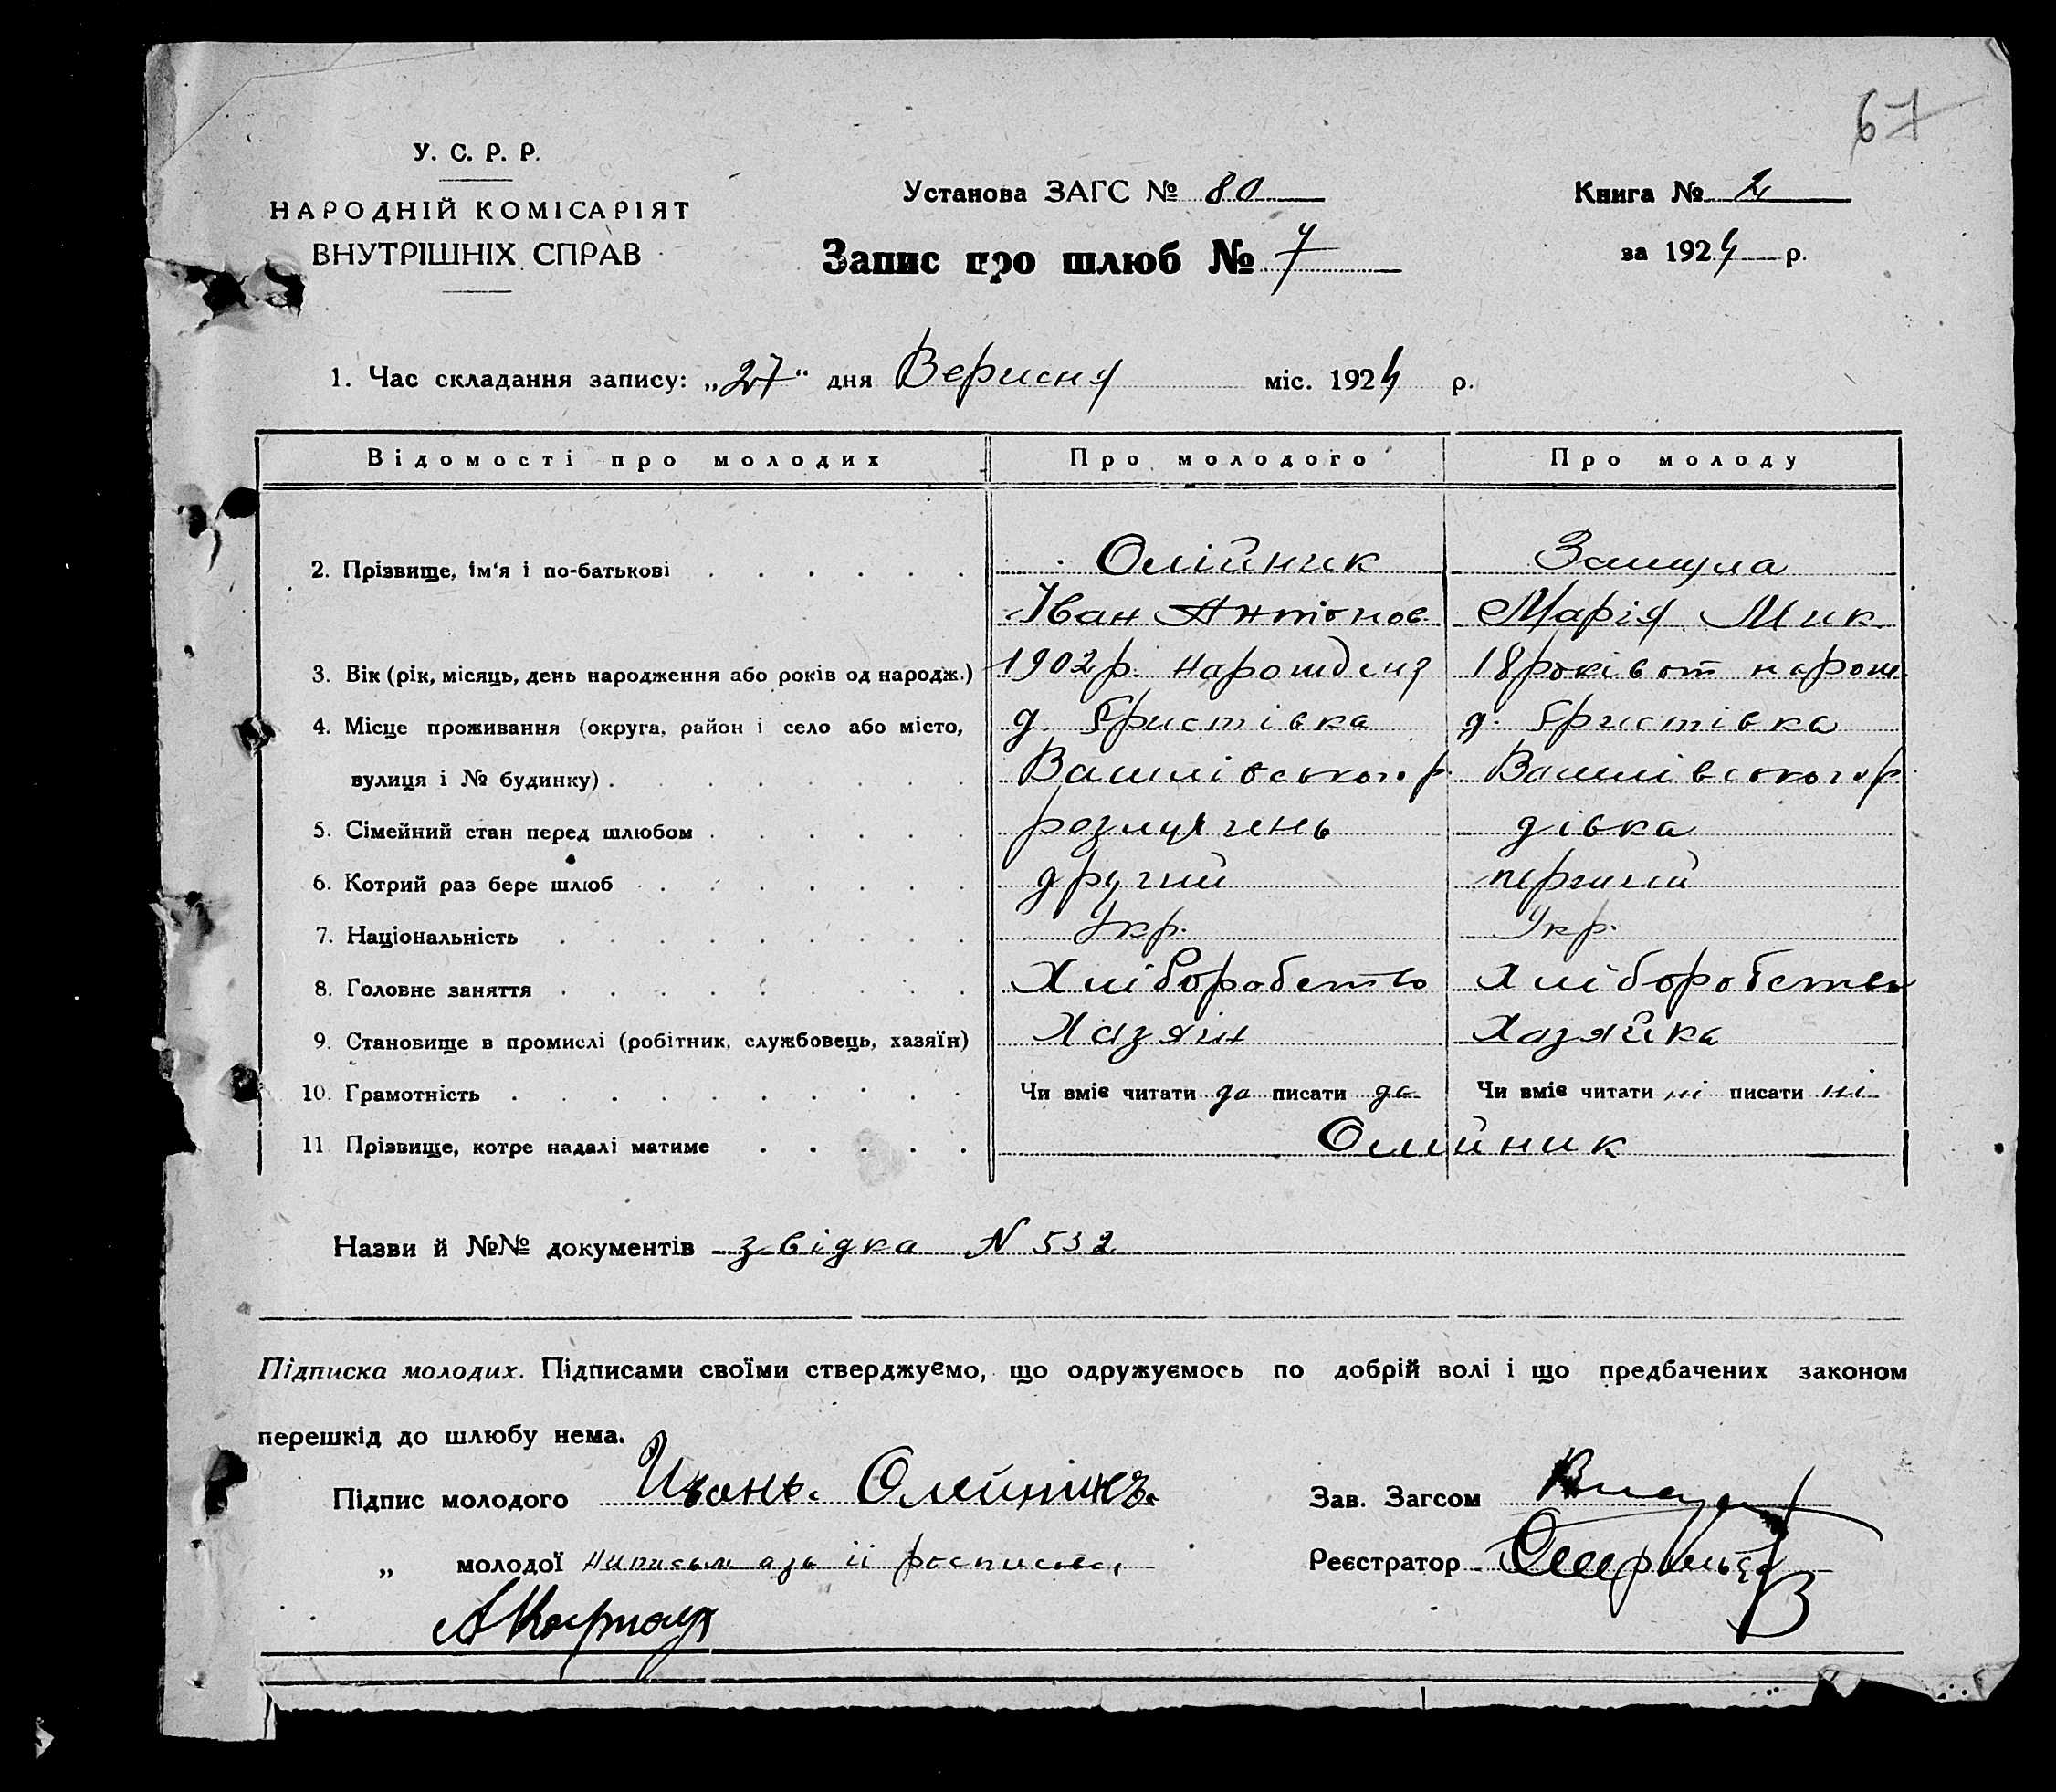 67
У. С. Р. Р.
НАРОДНІЙ КОМІСАРІЯТ
ВНУТРІШНІХ СПРАВ
Установа ЗАГС № 80
Запис про шлюб № 7
Книга № 2
за 1924 р.
1. Час складання запису: „27“ дня Вересня міс. 1924 р.
Відомості про молодих Про молодого Про молоду
2. Прізвище, ім‘я і по-батькові Олійник
Іван Антонов. Марія Мик.
3. Вік (рік, місяць, день народження або років од народж.) 1902 р. нарождения 18 років от нарож.
4. Місце проживання (округа, район і село або місто, д. Христівка д. Христівка
вулиця і № будинку)
5. Сімейний стан перед шлюбом розлучень дівка
6. Котрий раз бере шлюб другий перший
7. Національність Укр. Укр.
8. Головне заняття Хліборобство Хліборобство
9. Становище в промислі (робітник, службовець, хазяїн) Хазяін Хазяйка
10. Грамотність Чи вміє читати да писати да Чи вміє читати ні писати ні
11 Прізвище, котре надалі матиме Олійник
Назви й №№ документів звідка N 532
Підписка молодих. Підписами своїми стверджуємо, що одружуємось по добрій волі і що предбачених законом
перешкід до шлюбу нема.
Підпис молодого Ивань. Олейникъ.
Зав. Загсом
„ молодої іі росписався
Реєстратор